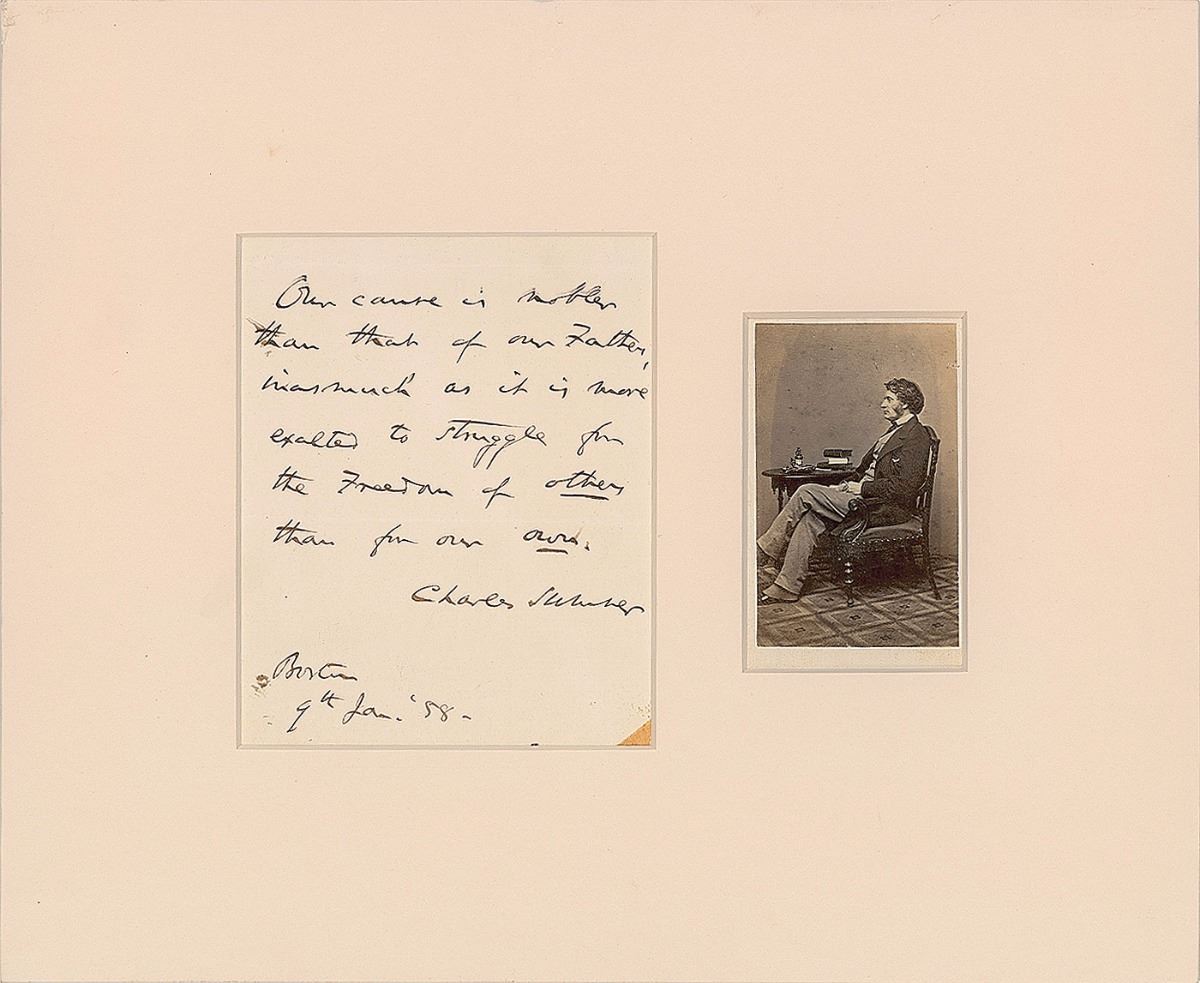 Our cause is nobler
than that of our Fathers,
inasmuch as it is more
exalted to struggle for
the Freedom of others
than for our own.
Charles Sumner
Boston
9th Jan. '58.